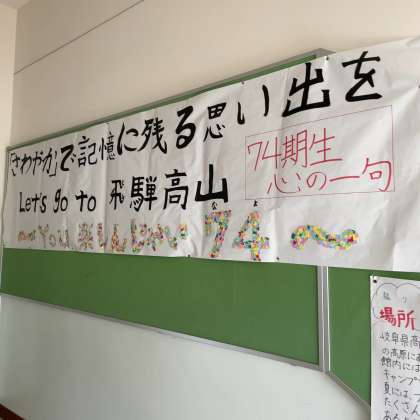 「さわやか」で記憶に残る思い出を
Let's go to 飛騨高山
74期生
心の一句
なよ
〜You, 楽しんじゃい 74〜
場所
岐阜県高
の高原に
館内には
キャンプ
夏には
たくさ